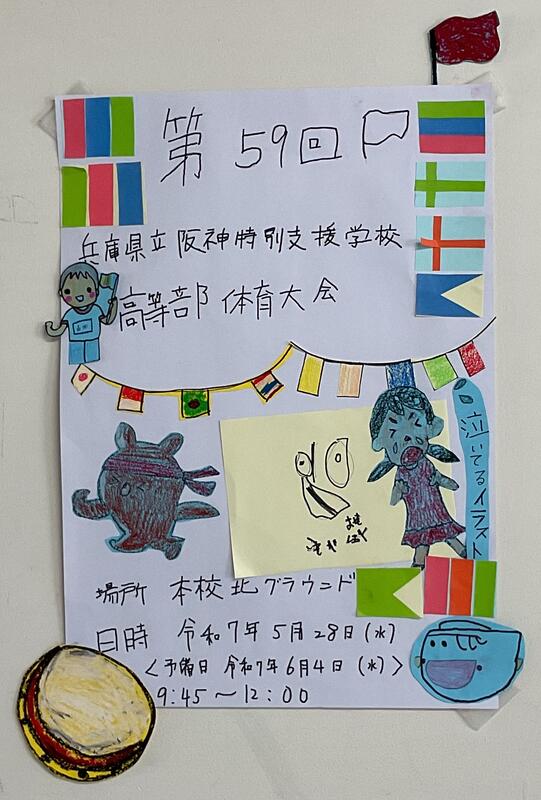 第59回
兵庫県立阪神特別支援学校
高等部 体育大会
泣いてるイラスト
場所 本校北グラウンド
日時 令和7年5月28日(水)
<予備日 令和7年6月4日(水)>
9:45～12:00